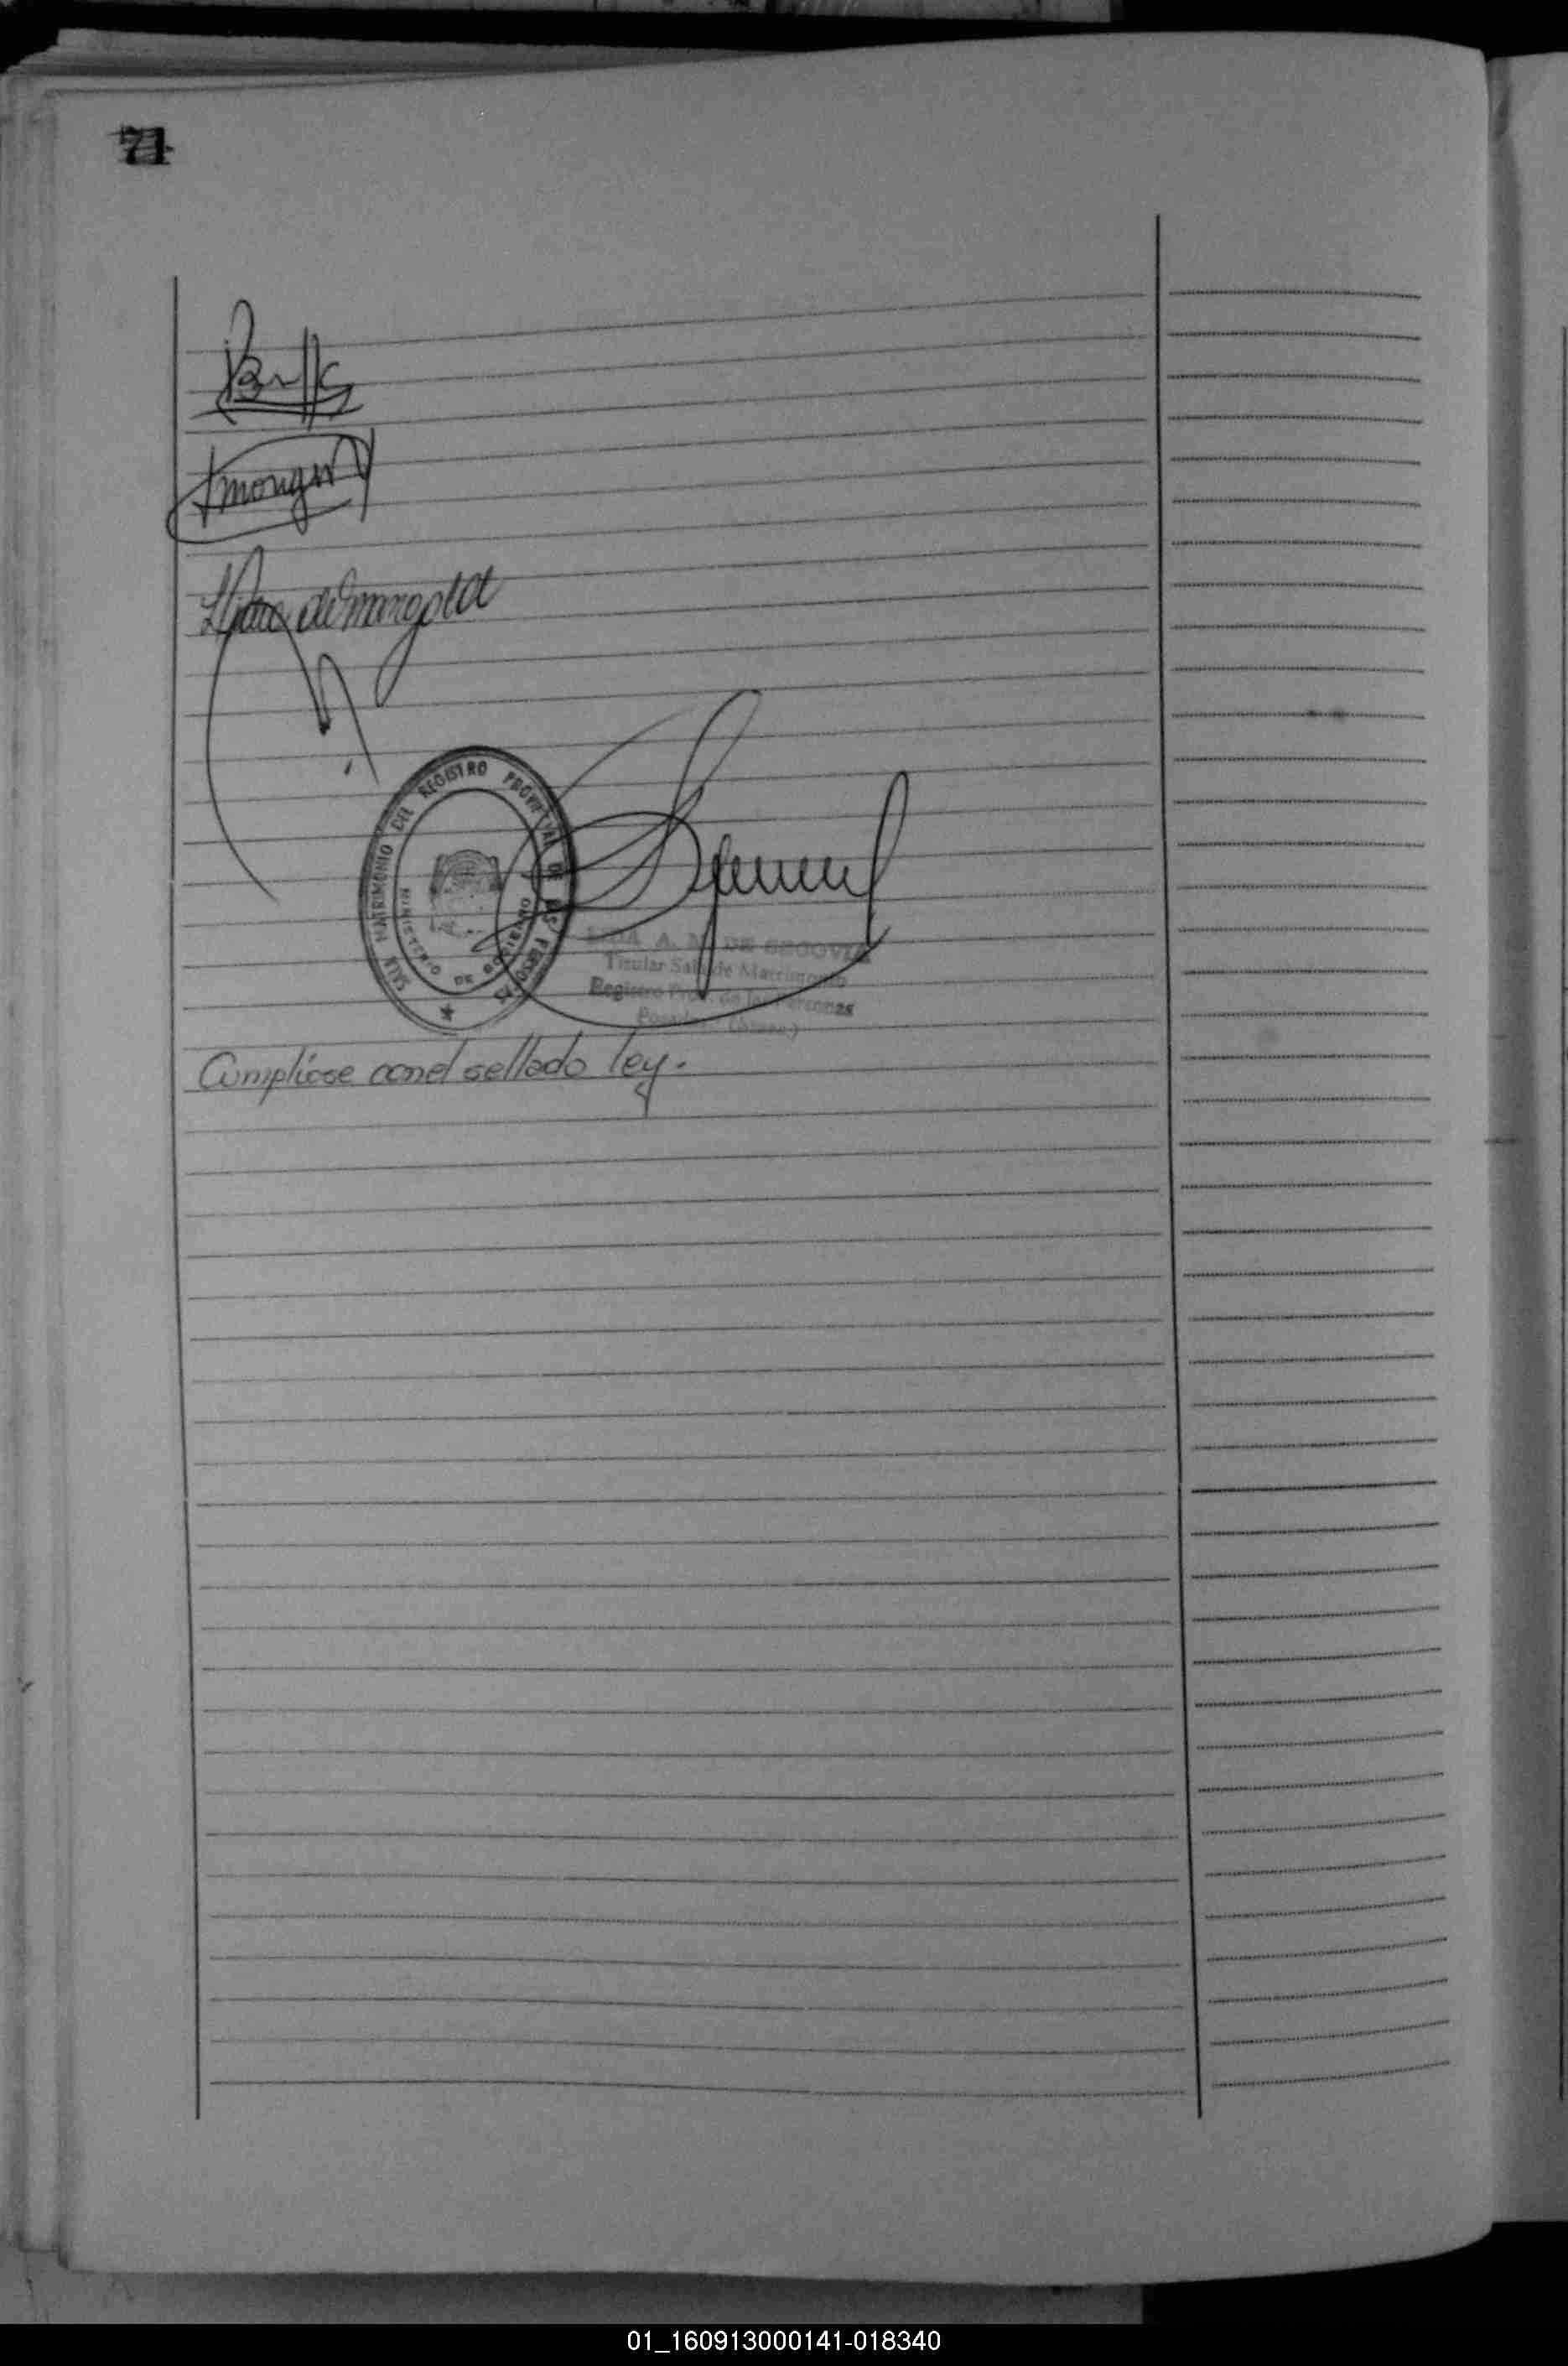 71
Lidia de Mangold
SALA MATRIMONIO DEL REGISTRO PROVINCIAL DE LAS PERSONAS
MINISTERIO DE GOBIERNO
LIDIA A. M. DE SEGOVIA
Titular Sala de Matrimonio
Registro Prov. de las Personas
Posadas (Mnes.)
Cumpliose con el sellado ley.
01_160913000141-018340